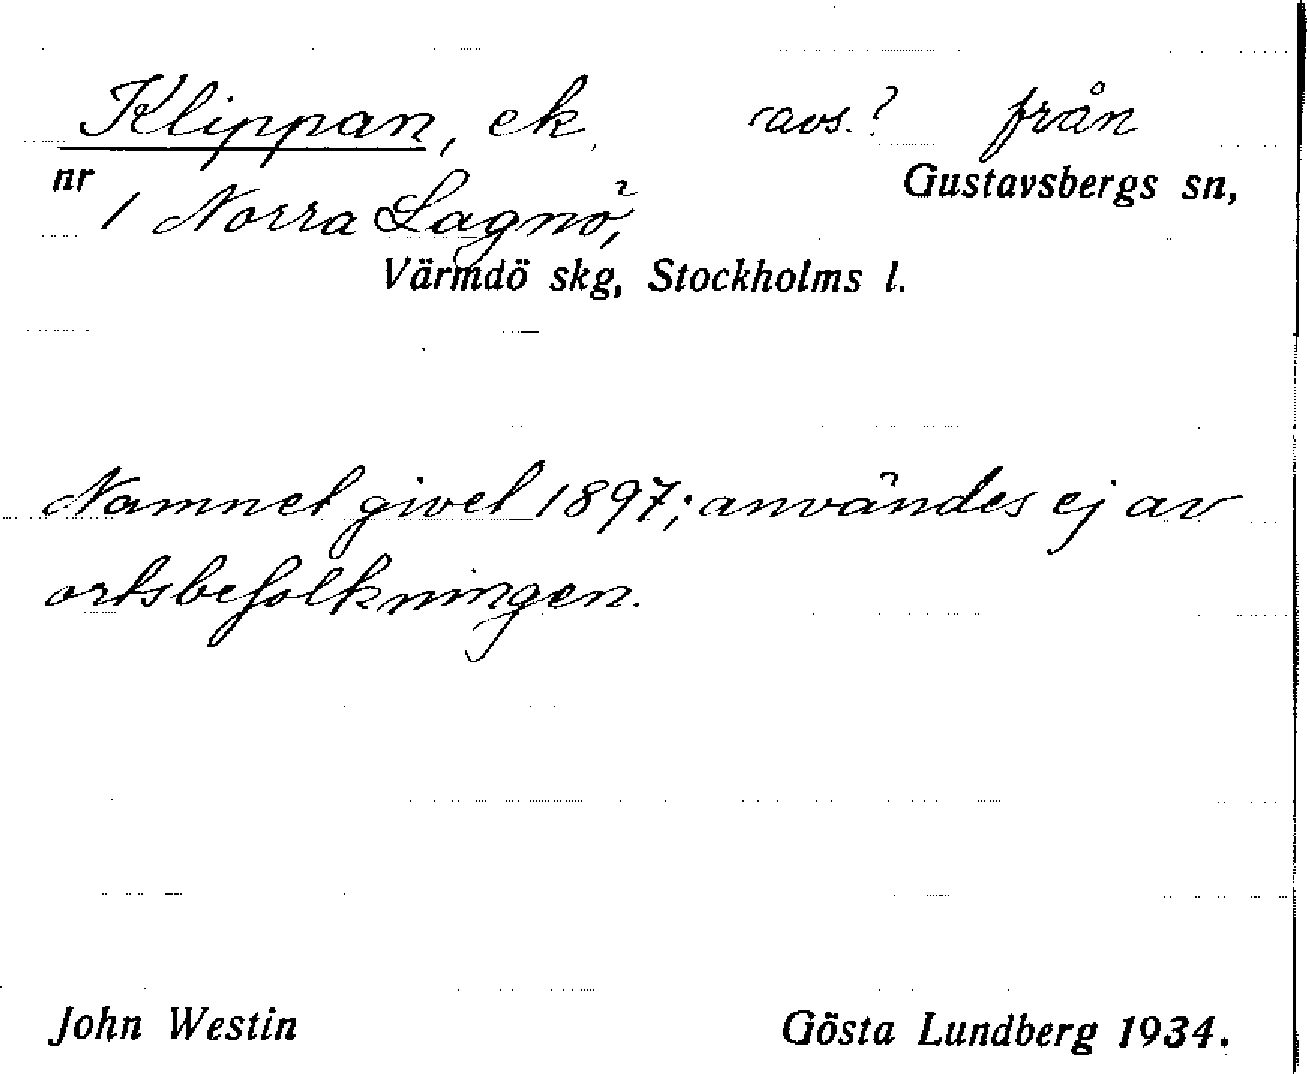 Klippan, ek. avs.? från
nr 1 Norra Lagnö, Gustavsbergs sn,
Värmdö skg, Stockholms l.
Namnet givet 1897; användes ej av
ortsbefolkningen.
John Westin Gösta Lundberg 1934.